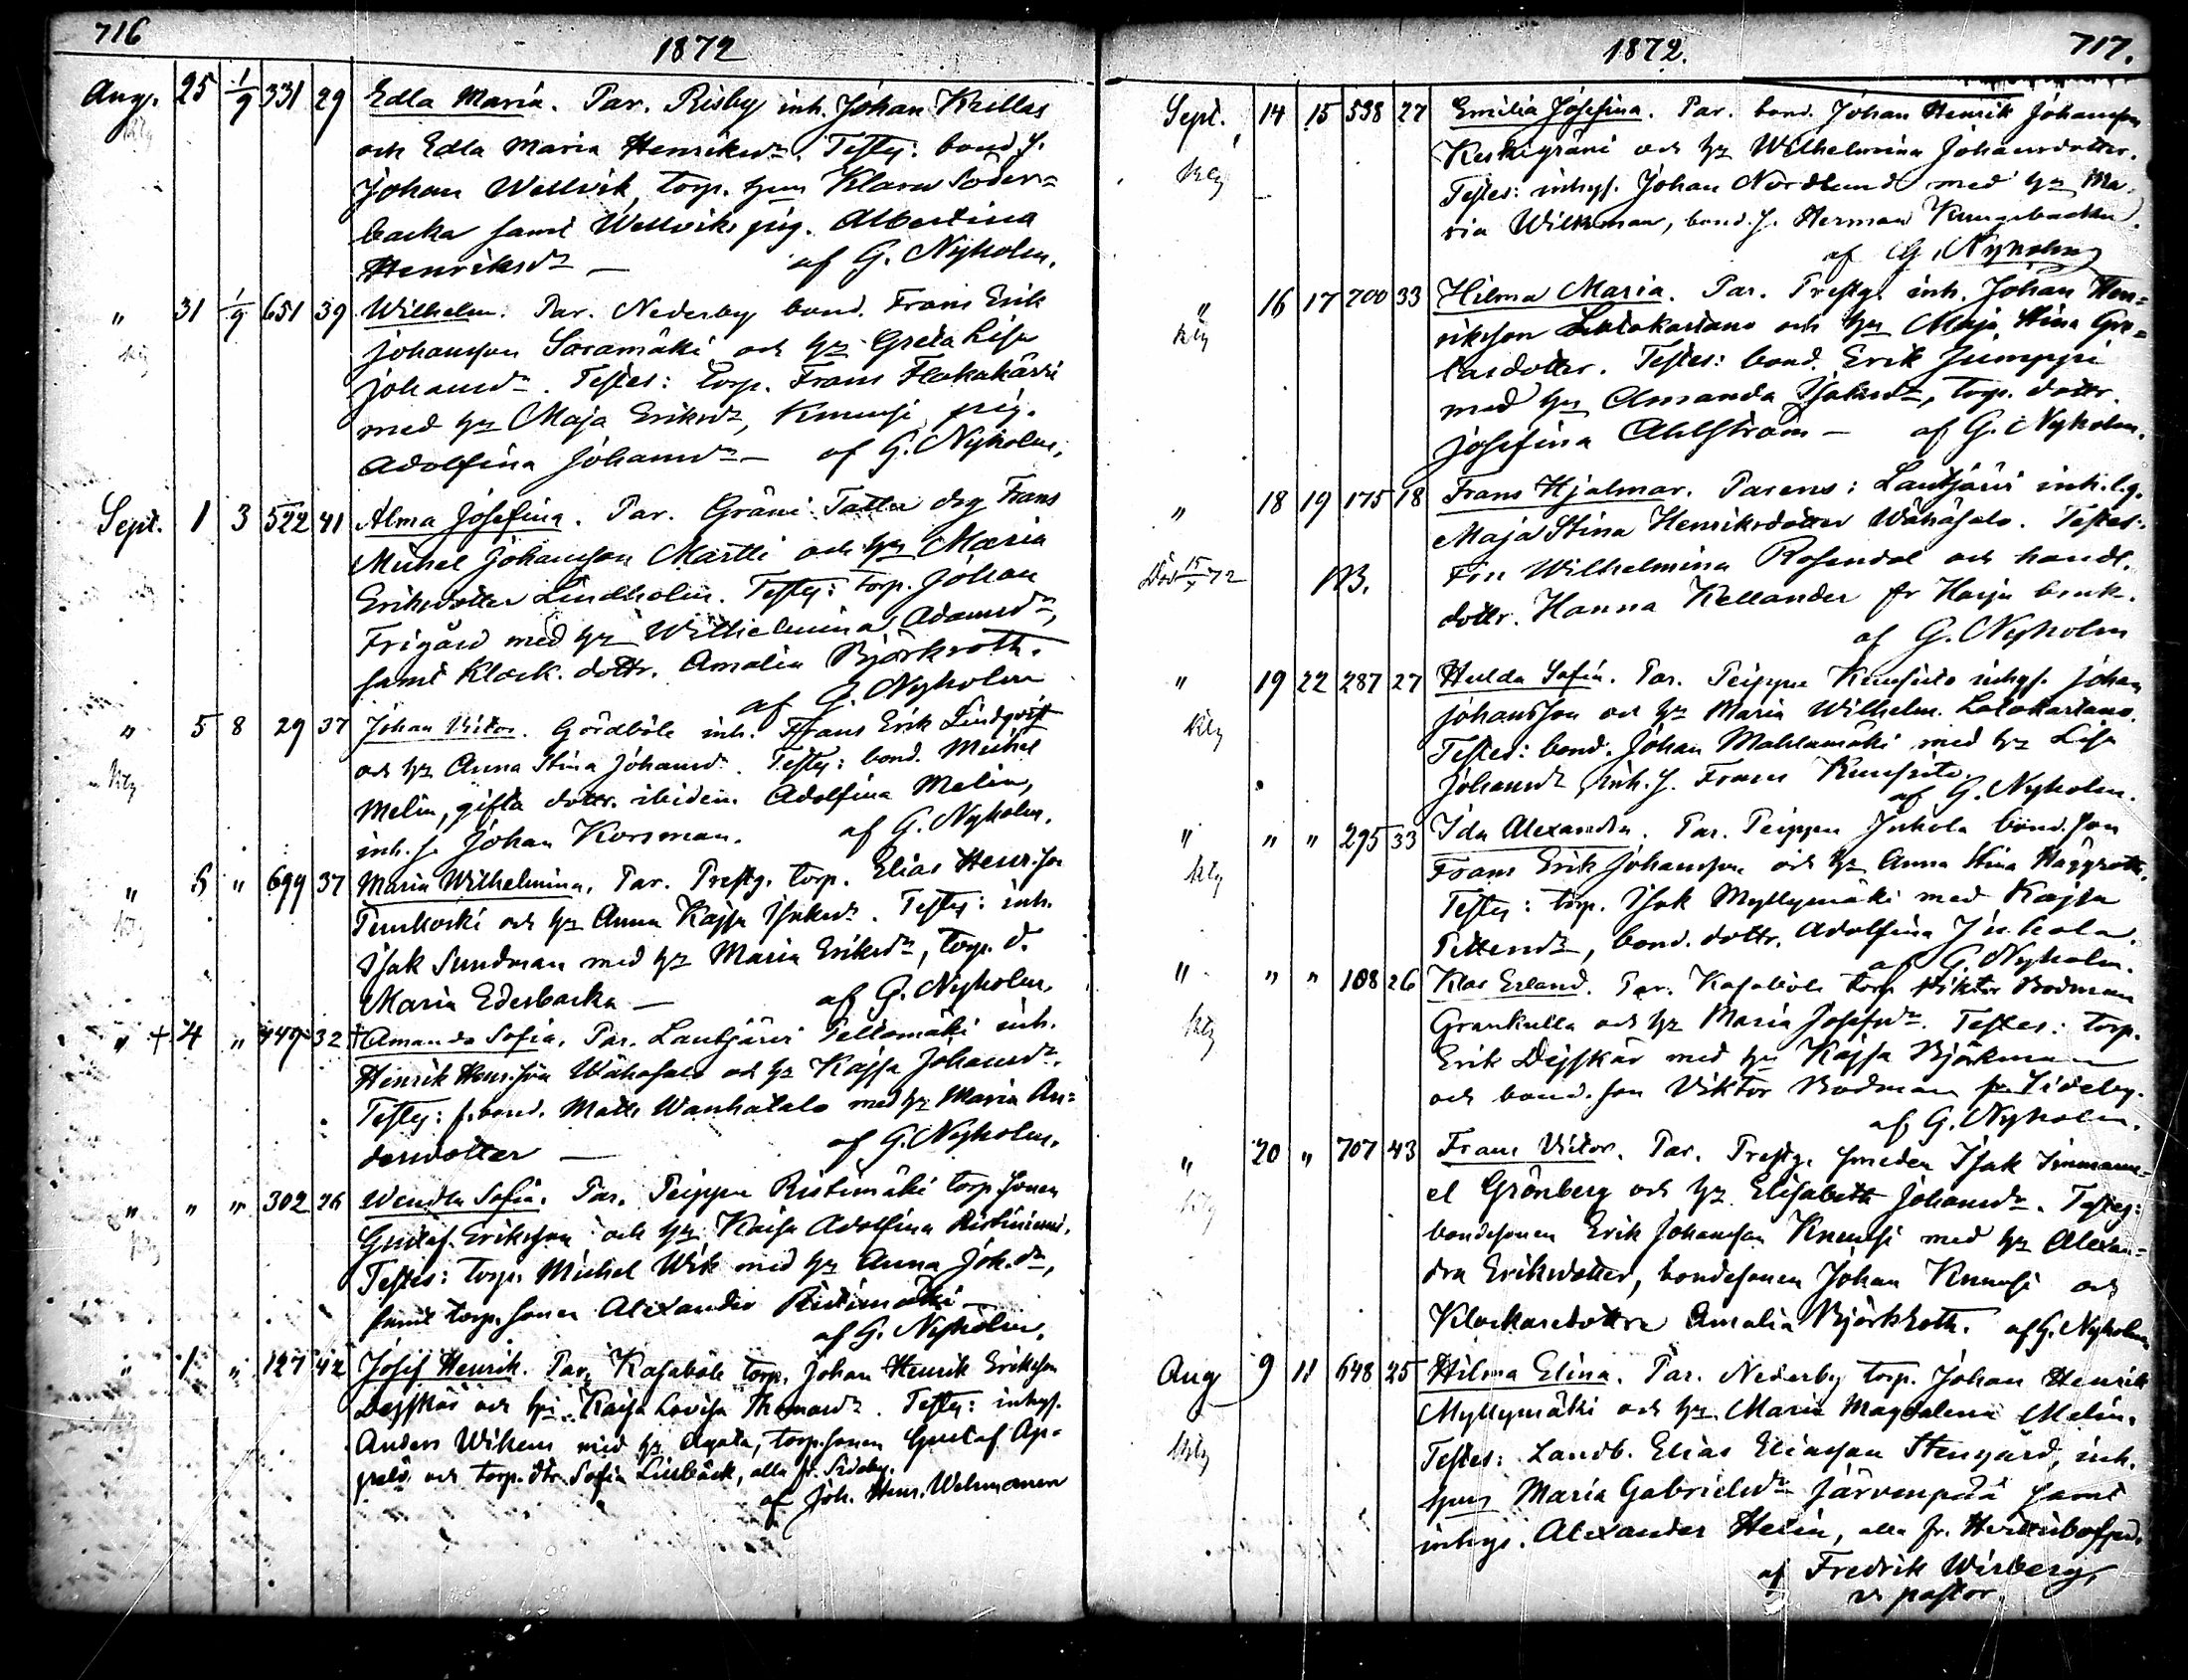 716
1872
Aug. 25 1/9 331 29 Edla Maria. Par. Risby inh. Johan Krillas
och Edla Maria Henriksdr. Testes: bond. s.
Johan Wellvik, torp. hu Klara Söder=
backa samt Wellviks pig. Albertina
Henriksdr — af G. Nyholm.
" 31 1/9 651 39 Wilhelm. Par. Nederby bond. Frans Erik
Johansson Saramäki och hu Greta Lisa
Johansdr. Testes: torp. Frans Flakakärri
med hu Maja Eriksdr, Knuusi pig.
Adolfina Johansdr — af G. Nyholm.
Sept. 1 3 522 41 Alma Josefina. Par. Gräni Talla drg Frans
Michel Johansson Martti och hu Maria
Eriksdotter Lindholm. Testes: torp. Johan
Frigård med hu Wilhelmina Adamsdr,
samt Klock. dottr. Amalia Björkroth.
af G. Nyholm
" 5 8 29 37 Johan Victor. Gårdböle inh. Frans Erik Lindqvist
och hu Anna Stina Johansdr. Testes: bond. Michel
Melin, gifta dottr. ibidem Adolfina Melin,
inh. s. Johan Korsman. af G. Nyholm.
" 5 " 699 37 Maria Wilhelmina. Par. Prestg. torp. Elias Henr.son
och hu Anna Kajsa Isaksdr. Testes: inh.
Isak Sundman med hu Maria Eriksdr, torp. d.
Maria Ederbacka — af G. Nyholm.
" + 4 " 449 32 + Amanda Sofia. Par. Lautjärvi Peltomäki inh.
Henrik Henr.son Wähäsalo och hu Kajsa Johansdr.
Testes: f. bond. Matts Wanhatalo med hu Maria An=
dersdotter — af G. Nyholm.
" " " 302 26 Wendla Sofia. Par. Peippu Ristimäki torp. sonen
Gustaf Eriksson och hu Kaisa Adolfina Ristiniemi.
Testes: torp. Michel Wik med hu Anna Joh.dr,
samt torp. sonen Alexander Ristimäki —
af G. Nyholm.
" 1 " 127 42 Josef Henrik. Par. Kasaböle torp. Johan Henrik Eriksson
Dejskär och hu Kaisa Lovisa Thomasdr. Testes: inhys.
Anders Wikens med hu Agata, torp.sonen Gustaf Ap=
pelö och torp. dtr Sofia Liubäck, alla fr. Sideby.
af Joh. Henr. Wehmanen
1872.
717.
Sept. 14 15 538 27 Emilia Josefina. Par. bond. Johan Henrik Johansson
Keskigräni och hu Wilhelmina Johansdotter.
Testes: inhys. Johan Nordlund med hu Ma=
ria Wilkman, bond. s. Herman Kungsbacka.
af G. Nyholm
" 16 17 700 33 Hilma Maria. Par. Prestg. inh. Johan Hen=
riksson Latokartano och hu Maja Stina Gre=
lasdotter. Testes: bond. Erik Jumppi
med hu Amanda Isaksdr, torp. dottr.
Josefina Ahlström — af G. Nyholm.
" 18 19 175 18 Frans Hjalmar. Parens: Lautjärvi inh. l.g.
Maja Stina Henriksdotter Wähäsalo. Testes:
NB. Frn Wilhelmina Rosendal och handl.
dottr. Hanna Kellander fr Haiju bruk.
af G. Nyholm
" 19 22 287 27 Hulda Sofia. Par. Peippu inhys. Johan
Johansson och hu Maria Wilhelm. Latokartano.
Testes: bond. Johan Mahlamäki med hu Lisa
Johansdr inh. s. Frans
af G. Nyholm.
" " " 295 33 Ida Alexandra. Par. Peippu Juhola bond. son
Frans Erik Johansson och hu Anna Stina Häggroth.
Testes: torp. Isak Myllymäki med Kajsa
bond. dottr. Adolfina Juhola.
af G. Nyholm.
" " " 108 26 Klas Erland. Par. Kasaböle torp. Viktor Bodman
Grankulla och hu Maria Josefsdr. Testes: torp.
Erik Dejskär med hu Kajsa Björkman
och bond. son Viktor Bodman fr Sideby.
af G. Nyholm.
" 20 " 707 43 Frans Victor. Par. Prestg. smeden Isak Immanu=
el Grönberg och hu Elisabeth Johansdr. Testes:
bondesonen Erik Johansson Knuusi med hu Alexan=
dra Eriksdotter, bondesonen Johan Knuusi och
Klockaredottre Amalia Björkroth. af G. Nyholm
Aug 9 11 648 25 Hilma Elina. Par. Nederby torp. Johan Henrik
Myllymäki och hu Maria Magdalena Melin.
Testes: Landb. Elias Eliasson Stengård, inh.
hu Maria Gabrielsdr Järvenpää samt
inhys. Alexander Helin, alla fr. Hvittisbofjerd.
af Fredrik Wirberg,
v. pastor.